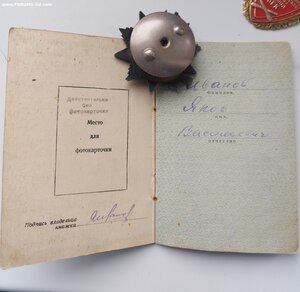 Действительно
без
фотокарточки
Место
для
фотокарточки
Подпись владельца
книжки
Иванов
фамилия
Яков
имя
Васильевич
отчество